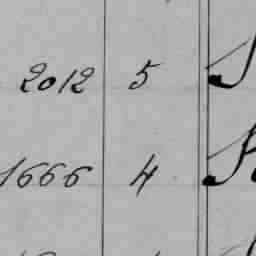 2012 5
1666 4